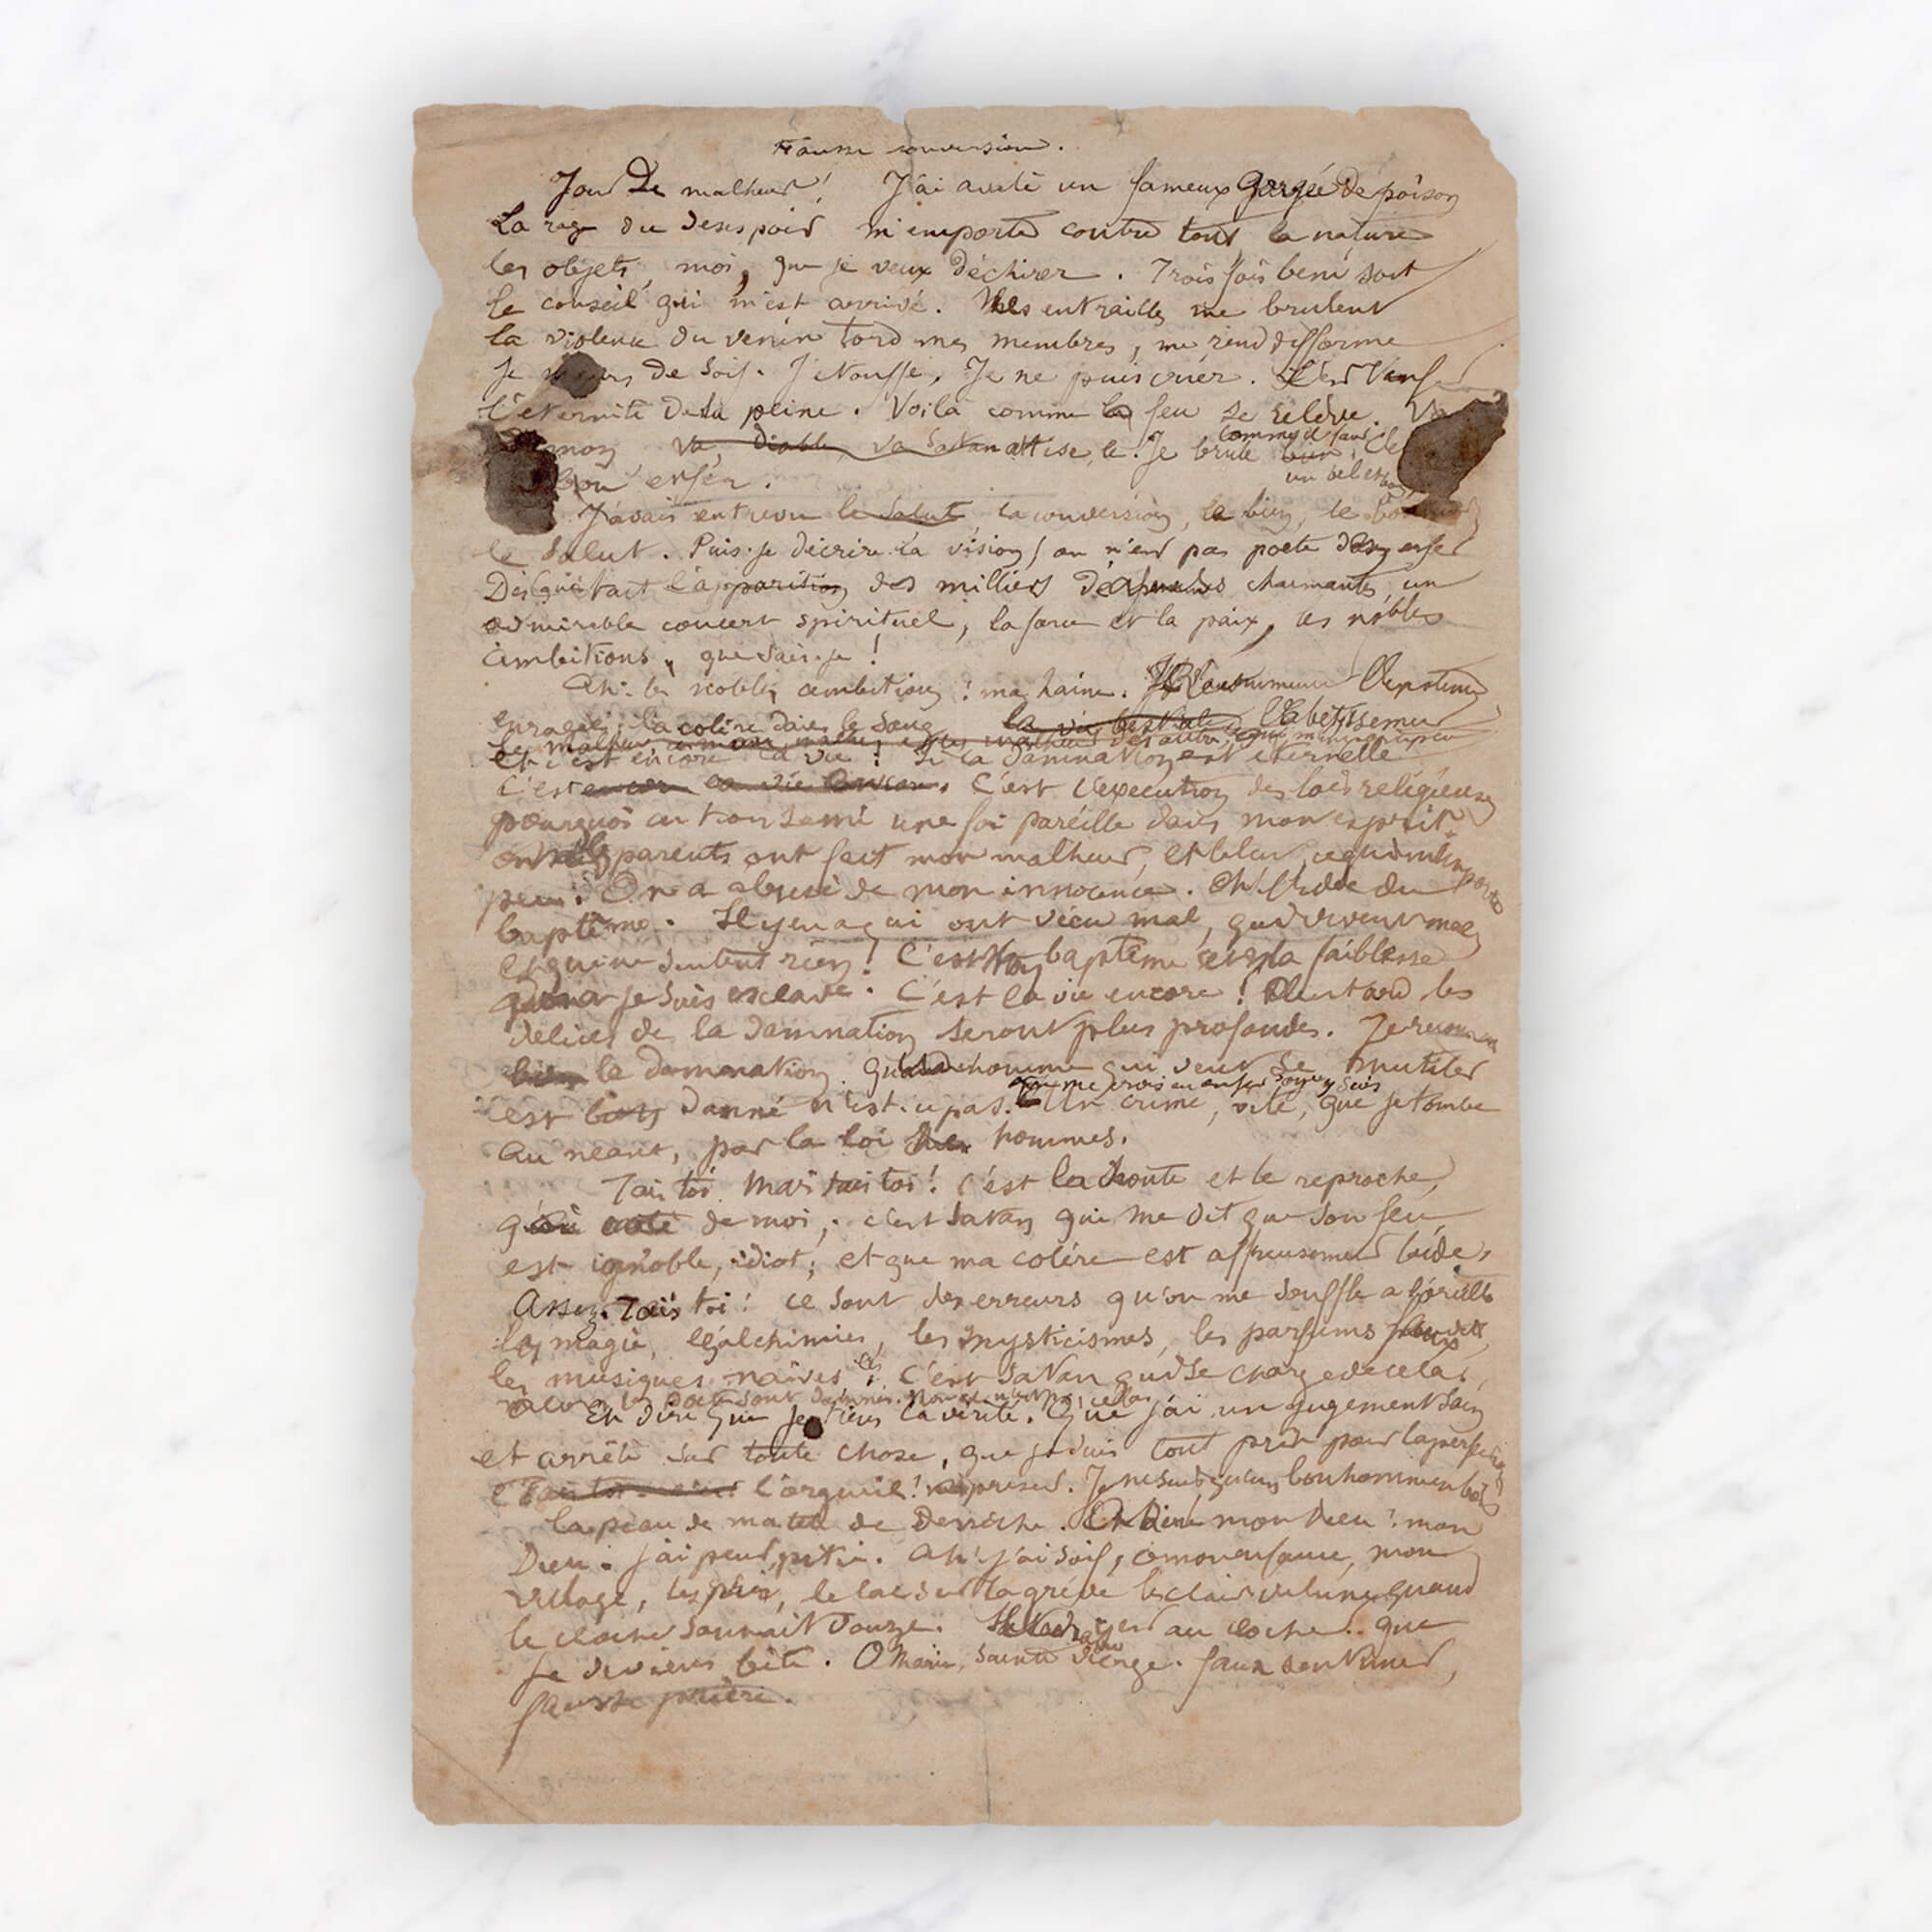 Fausse conversion.
Jour de malheur ! J'ai avalé un fameux gorgée de poison
La rage du desespoir m'emporte contre tout la nature
les objets, moi, que je veux déchirer. Trois fois beni soit
le conseil qui m'est arrivé. Mes entrailles me brulent
la violence du venin tord mes membres, me rend difforme
Je meurs de soif. J'etouffe. Je ne puis crier. C'est l'enfer
l'eternité de la peine. Voilà comme le feu se relève. Va
démon va, diable, va Satan attise le. Je brule bien
comme il faut
un bel et bon
bon enfer.
J'avais entrevu le salut, la conversion, le bien, le bonheur
le salut. Puis-je décrire la vision, on n'est pas poete dans enfer
Dès que c'était l'apparition des milliers de charmantes, un
admirable concert spirituel, la force et la paix, les nobles
ambitions, que sais-je !
Ah : les nobles ambitions ! ma haine.
enragée : la colère dans le sang la vie bestiale l'abêtissement
le malheur
et c'est encore la vie ! Si la damnation est éternelle
C'est encore la vie encore. C'est l'execution des lois religieuses
pourquoi a-t-on semé une foi pareille dans mon esprit
parents ont fait mon malheur, et le leur, ce qui m'importe
peu. On a abusé de mon innocence. Oh ! l'idée du
baptême. Il y en a qui ont vécu mal, qui vivent mal
et qui ne sentent rien ! C'est mon baptême et ma faiblesse
dont je suis esclave. C'est la vie encore ! Plus tard, les
delices de la damnation seront plus profondes. Je reconnais
bien la damnation. Un homme qui veut se mutiler
me crois en enfer donc j'y suis
est bien damné n'est-ce pas. Un crime, vite, que je tombe
au néant, par la loi des hommes.
Tais toi. Mais tais toi ! C'est la honte et le reproche,
à côté de moi, c'est Satan qui me dit que son feu
est ignoble, idiot ; et que ma colère est affreusement laide.
Assez. Tais toi ! ce sont des erreurs qu'on me souffle à l'oreille
la magie, l'alchimies, les mysticismes, les parfums faux
les musiques naïves. C'est Satan qui se charge de cela.
Et dire que je tiens la vérité. Que j'ai un jugement sain
et arrêté sur toute chose, que je suis tout prêt pour la perfection
l'orgueil ! à présent. Je ne suis qu'un bonhomme en bois
la peau de ma tête se dessèche. Oh Dieu mon Dieu ! mon
Dieu. J'ai peur, pitié. Ah ! j'ai soif, o mon enfance, mon
village, les prés, le lac sur la grève le clair de lune quand
le clocher sonnait douze. est au clocher. que
Je deviens bête. O Marie, Sainte Vierge. faux sentiment,
fausse prière.